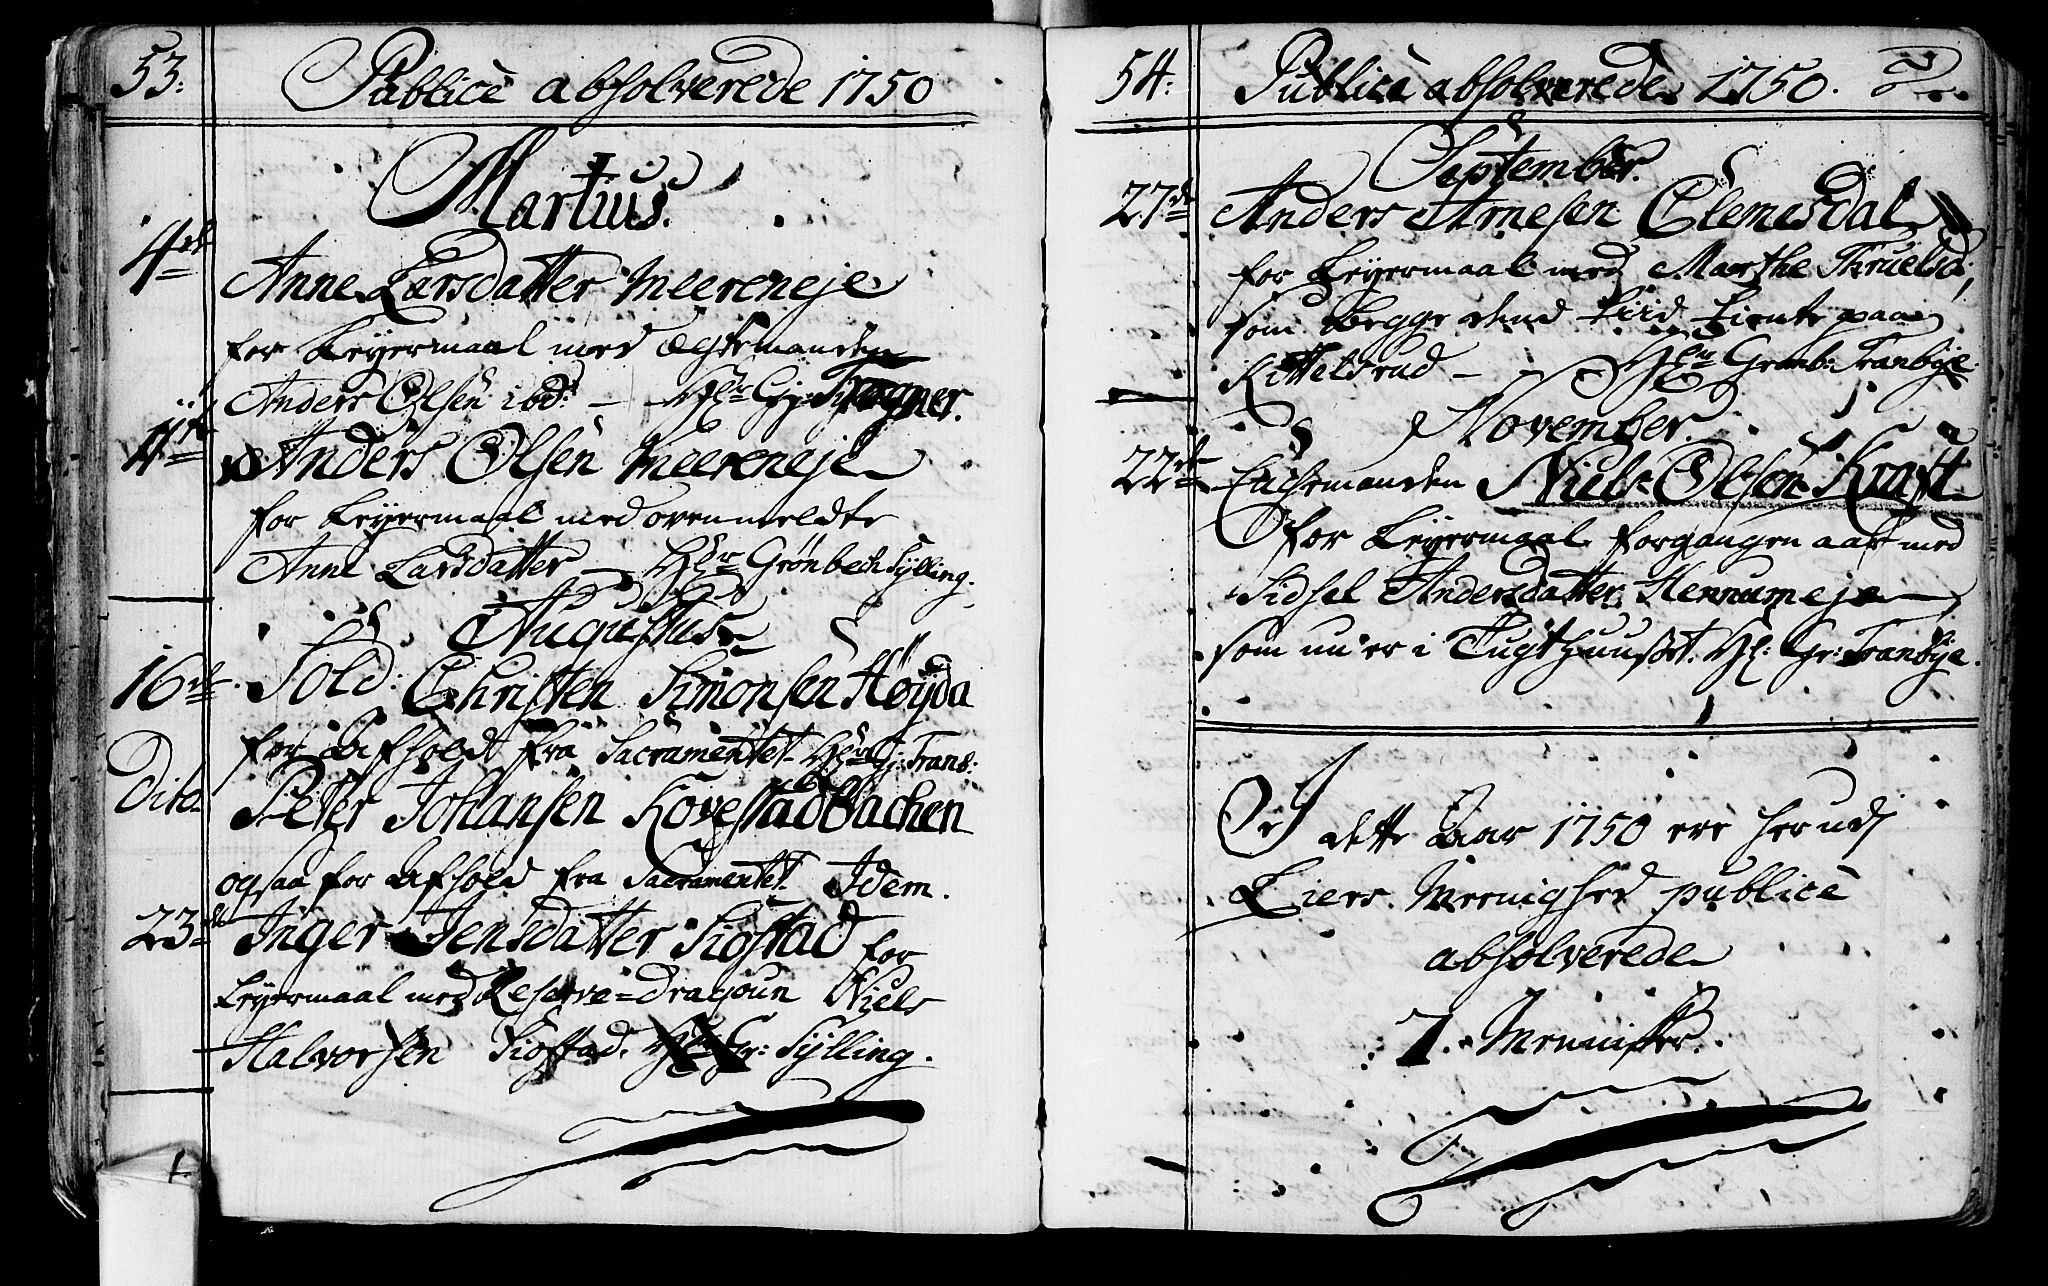 53.
Publicè absolverede 1750
Martius.
4de Anne Larsdatter Meereneje
for Leyermaal med Ægtemanden
Anders Olsen ibd: –
4de Anders Olsen Meereneje
for Leyermaal med ovenmeldte
Anne Larsdatter – Hr Grönbech Sylling.
Augustus
16de Sold: Christen Simonsen Höyda
for Afhold fra Sacramentet. Hr Gr: Tranb:
Dito Peter Johansen Kovestadbachen
ogsaa for Afhold fra Sacramentet. Idem.
23de Inger Jensdatter Siøstad for
Leyermaal med Reserve-Dragoun Niels
Halvorsen Siøstad. Hr Gr: Sylling.
54.
Publicè absolverede 1750.
September.
27de Anders Arnesen Clemesdal
for Leyermaal med Marthe Thruelsd;
som begge dend tiid tiente paa
Kittelsrud – Hr Grönb: Tranbye.
November.
22de Egtemanden Niels Olsen Kraft
for Leyermaal forgangen aar med
Sidsel Andersdatter Hennumeje
som nu er i Tugthuuset. Hr: Gr: Tranbye.
I dette Aar 1750 ere herudj
Liers Meenighed publicè
absolverede
7. Mennister.